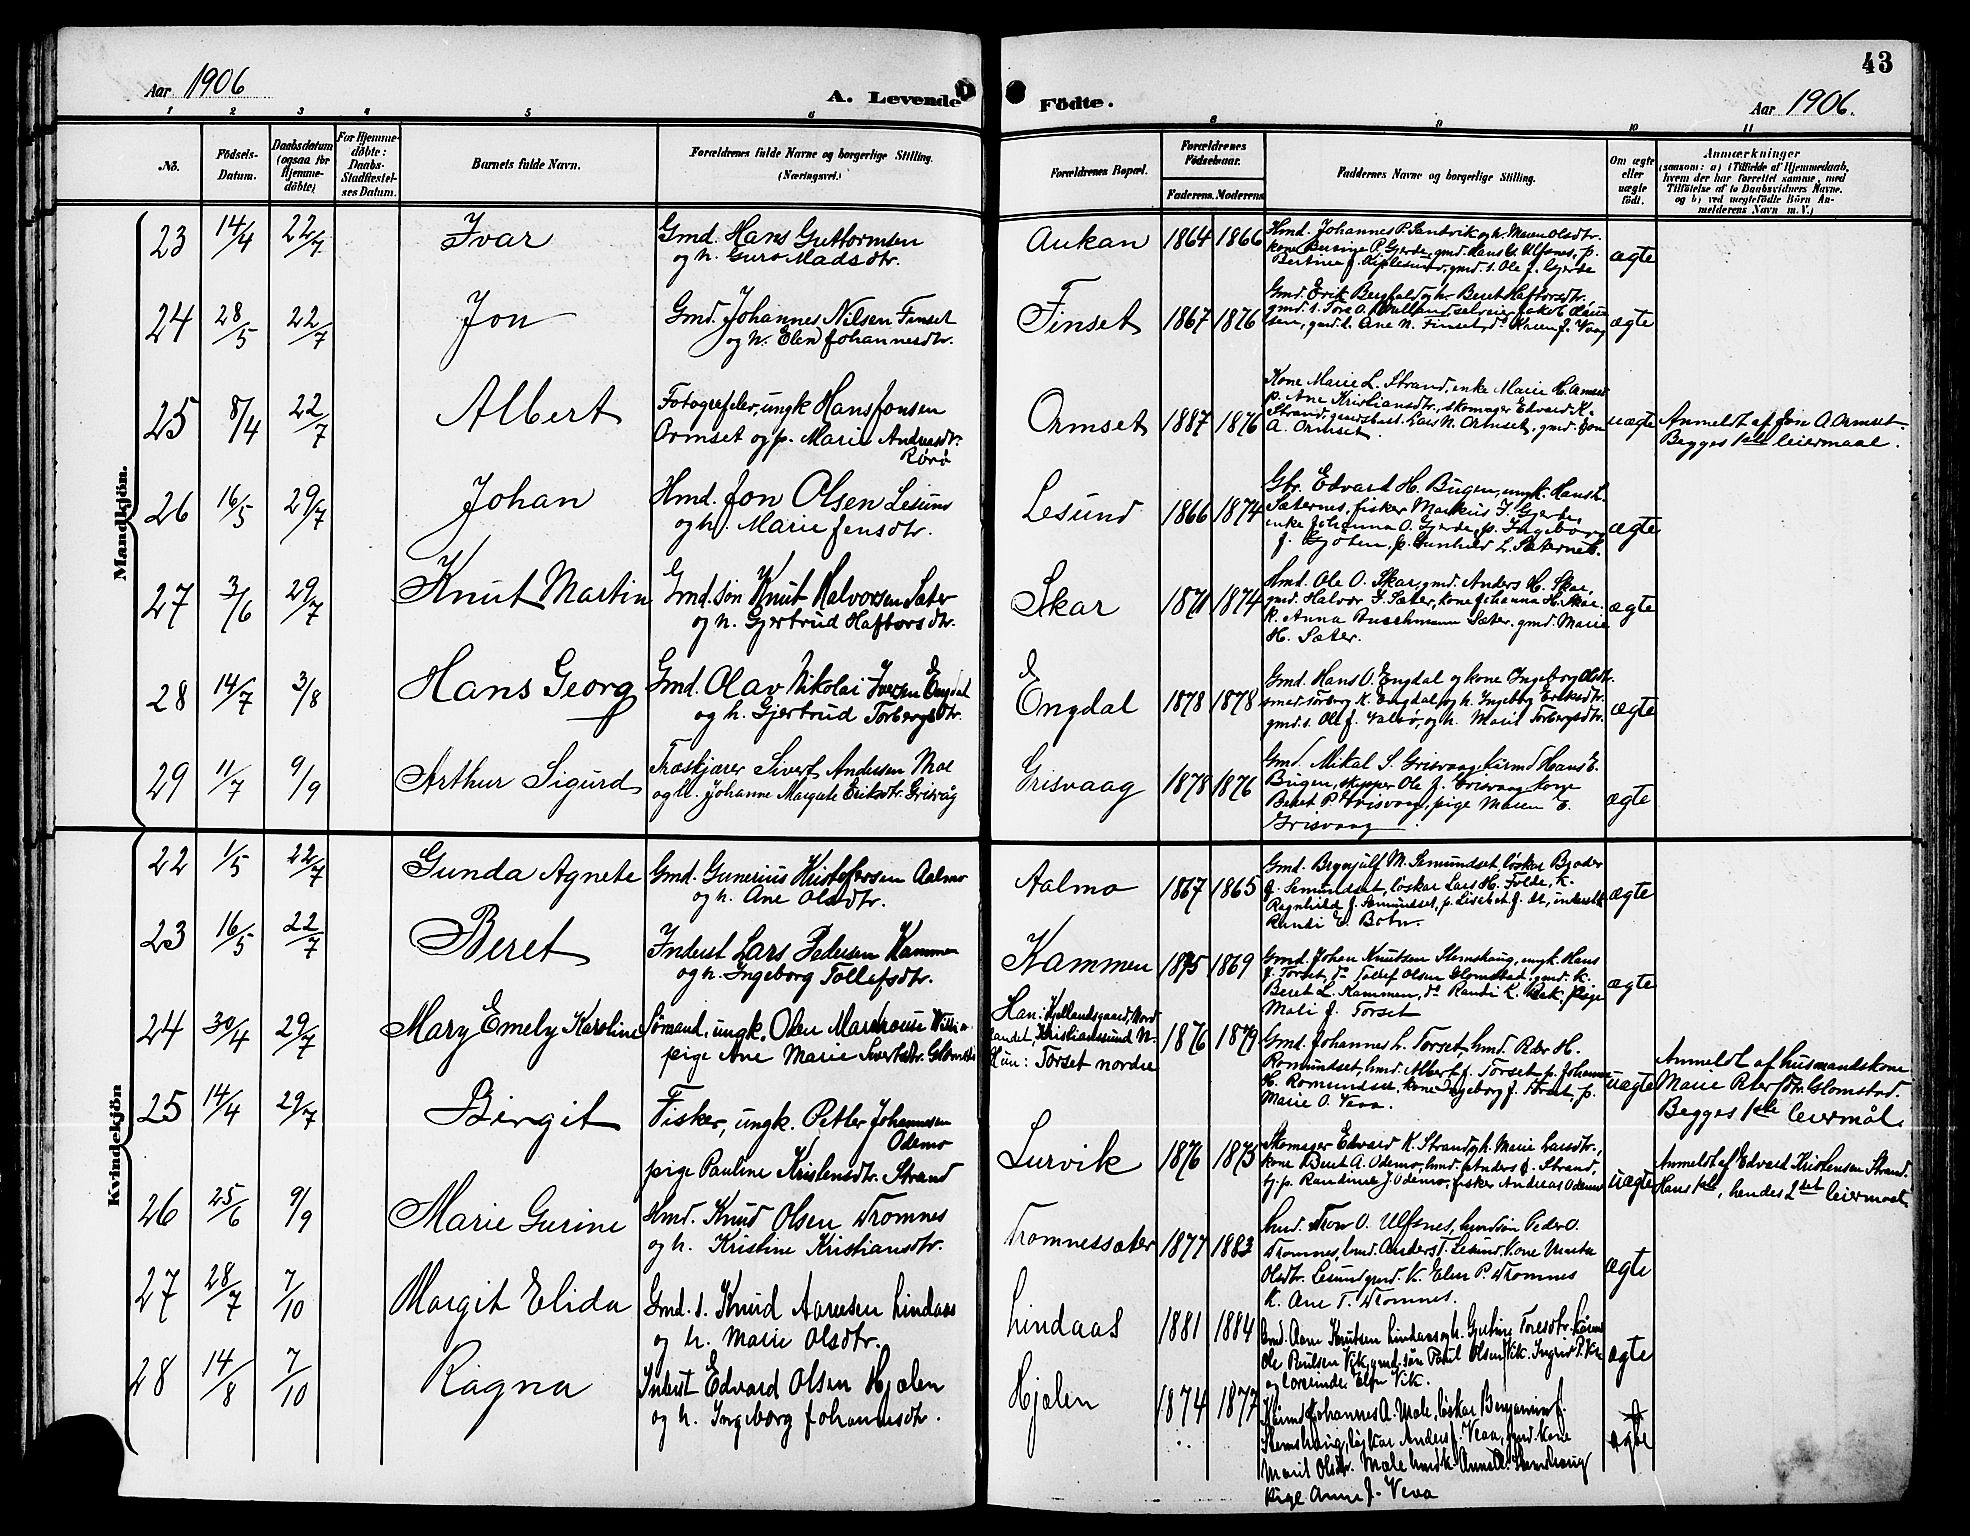 Aar 1906
A. Levende
Födte.
43
Aar 1906.
1 2 3 4 5 6 8 9 10 11
No.
Födsels-Datum.
Daabsdatum (ogsaa for Hjemme-döbte)
For Hjemme-döbte: Daabs-Stadfæstel-ses Datum.
Barnets fulde Navn.
Forældrenes fulde Navne og borgerlige Stilling. (Næringsvei.)
Forældrenes Bopæl.
Forældrenes Födselsaar.
Faderens. Moderens.
Faddernes Navne og borgerlige Stilling.
Om ægte eller uægte födt.
Anmærkninger
(saasom: a) i Tilfælde af Hjemmedaab,
hvem der har forrettet samme, med
Tilföielse af to Daabsvidners Navne.
og b) ved uægtefödte Börn An-
melderens Navn m. V.)
Mandkjön.
23 14/4 22/7 Ivar
Gmd. Hans Guttormsen
og h. Guro Madsdtr.
Aukan 1864 1866
Hmd. Johannes P. Sandvik og h. Maren Olsdtr.
ægte
24 28/5 22/7 Jon
Gmd. Johannes Nilsen Finset
og h. Elen Johannesdtr.
Finset 1867 1876
ægte
25 8/4 22/7 Albert
ungk Hans Jonsen
Ormset og p. Marie Andreasdtr.
Rørø
Ormset 1887 1876
Kone Marie L. Strand, enke Marie H.
p. Ane Kristiansdtr., skomager Edvard K.
Strand, Lars N. Ormset, gmd. Jon
A. Ormset.
uægte
Anmeldt af Jon A. Ormset.
Begges 1ste leiermaal.
26 16/5 29/7 Johan
Hmd. Jon Olsen Lesund
og h. Marie Jensdtr.
Lesund 1866 1874
Gbr. Edvard H. Bugen, ungk. Hans L.
Sæternes, fisker Markus J. Gjerde,
enke Johanna O. Gjerde, p. Ingeborg
J. p. Gunhild L. Sæternes.
ægte
27 3/6 29/7 Knut Martin
Gmd. søn Knut Halvorsen Sæter
og h. Gjertrud Haftorsdtr.
Skar 1871 1874
Hmd. Ole O. Skar, gmd. Anders H. Skar,
gmd. Halvor J. Sæter, kone Johanna H. Skar.
K. Anna Buschmann Sæter. gmd. Marie
H. Sæter.
ægte
28 14/7 3/8 Hans Georg
Gmd. Olav Nikolai Iversen Engdal
og h. Gjertrud Torbergsdtr.
Engdal 1878 1878
Gmd. Hans O. Engdal og kone Ingeborg Olsdtr.
smed Torberg K. Engdal og h. Ingebg Eriksdtr.
gmd. s. Ole J. Valsø, og h. Marit Torbergsdtr.
ægte
29 11/7 9/9 Arthur Sigurd
Træskjærer Sivert Andersen Moe
og h. Johanne Margrete Eriksdtr. Grisvåg
Grisvaag 1878 1876
Gmd. Mikal S. Grisvaag, Hans E.
Bugen, skipper Ole J. Grisvaag kone
Beret P. Grisvaag, pige Maren E.
Grisvaag.
ægte
Kvindekjön
22 1/5 22/7 Gunda Agnete
Gmd. Gunerius Kristofersen Aalmo
og h. Ane Olsdtr.
Aalmo 1867 1865
Gmd. Brynjulf M. Semundset, løskar
J. Semundset, løskar Lars H. Folde, k.
Ragnhild J. Semundset, p. Lisabet J. do,
Randi E. Botn.
ægte
23 16/5 22/7 Beret
Inderst Lars Pedersen Kammen
og h. Ingeborg Tollefsdtr.
Kammen 1869
Gmd. Johan Knutsen Stemshaug, ungk. Hans
J. Torset, do Tollef Olsen Glomstad, gmd. k.
Beret L. Kammen, do Randi K. Bæk, pige
Mali J. Torset
ægte
24 30/4 29/7 Mary Emely Karoline
Sømand, ungk. Olen
pige Ane Marie Sivertsdtr.
Han: Kjellandsgaard, Nord
landet, Kristianssund N.
Hun: Torset nordre
1876 1879
Gmd. Johannes L. Torset, hmd. H.
Romundset, hmd. Albert J. Torset, p. Johanne
H. Romundset, kone Ingeborg J. Torset, p.
Marie O. Vaa.
uægte
Anmeldt af husmandskone
Marie Glomstad.
Begges 1ste leiermål.
25 14/4 29/7 Birgit
Fisker, ungk. Petter Johannesen
Odemo
pige Pauline Kristensdtr. Strand
Lurvik 1876 1875
Skomager Edvard K. Strand og h. Marie Larsdtr.,
kone Beret A. Odemo, hmd. Anders J. Strand,
tj. p. Randina J. Odemo, fisker Andreas Odemo
uægte
Anmeldt af Edvard Kristensen Strand.
Hans 1ste, hendes 2det leiermaal.
26 25/6 9/9 Marie Gurine
Hmd. Knud Olsen Tromnes
og h. Kristine Kristiansdtr.
Tromnessæter 1877 1883
hmd. O. Ulfsnes, hmdsøn Peder O.
Tromnes, hmd. Anders T. Lesund, kone Marta
Olsdtr. Lesund, gmd. k. Elen P. Tromnes
k. Ane T. Tromnes.
ægte
27 28/7 7/10 Margit Elida
Gmd. s. Knud Aanesen Lindaas
og h. Marie Olsdtr.
Lindaas 1881 1884
Gmd. Aane Knutsen Lindaas og h. Toresdtr.
Ole Paulsen Vik, gmd. søn Paul Olsen Vik. Ingrid P. Vik
og Elen Vik.
ægte
28 14/8 7/10 Ragna
Inderst Edvard Olsen Hjølen
og h. Ingeborg Johannsdtr.
Hjølen 1874 1877
Johannes A. Møle, løskar Benjamin J.
Stemshaug, løskar Anders J. Vaa, gmd. kone
Marit Olsdtr. Møle, Stemshaug
pige Anne J. Vaa
ægte